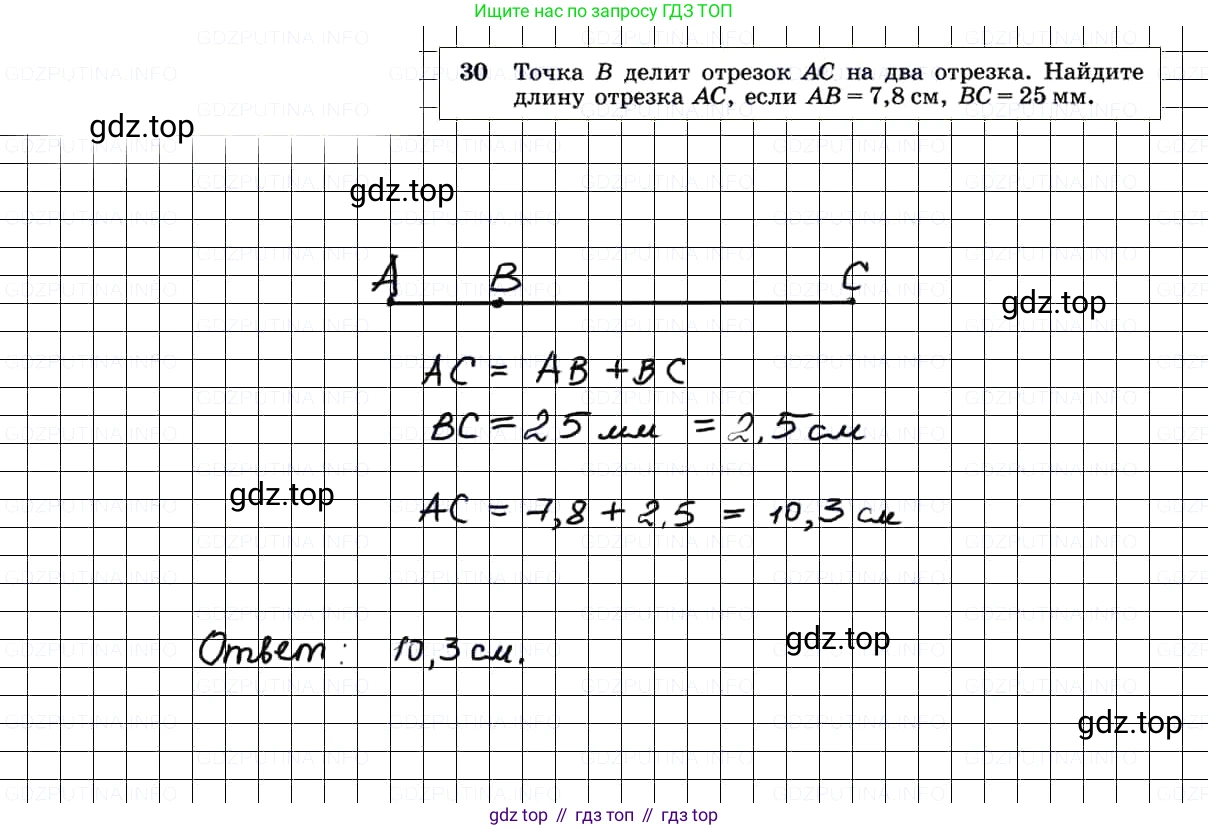 Ищите нас по запросу ГДЗ ТОП
30 Точка B делит отрезок AC на два отрезка. Найдите
длину отрезка AC, если AB = 7,8 см, BC = 25 мм.
gdz.top
gdz.top
A B C
gdz.top
AC = AB + BC
BC = 25 мм = 2,5 см
gdz.top
AC = 7,8 + 2,5 = 10,3 см
gdz.top
Ответ: 10,3 см.
gdz.top
gdz top // гдз топ // гдз top
GDZPUTINA.INFO